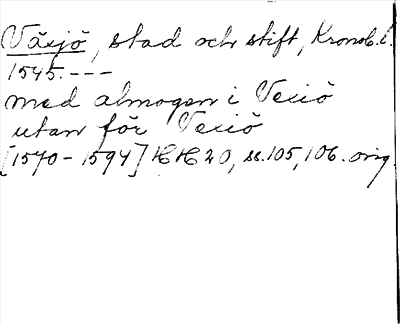 Växjö, stad och stift, Kronob. l.
1545. ---
med almogen i Vexiö
utan för Vexiö
[1570-1594] HH 20, ss. 105, 106. orig.